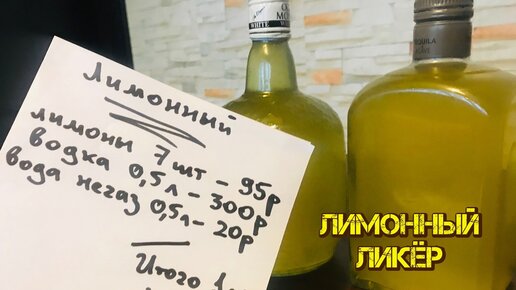 Лимонный
лимоны 7 шт - 95р
водка 0,5л - 300р
вода негаз 0,5л - 20р
Итого
WHITE
TEQUILA
ЛИМОННЫЙ
ЛИКЁР